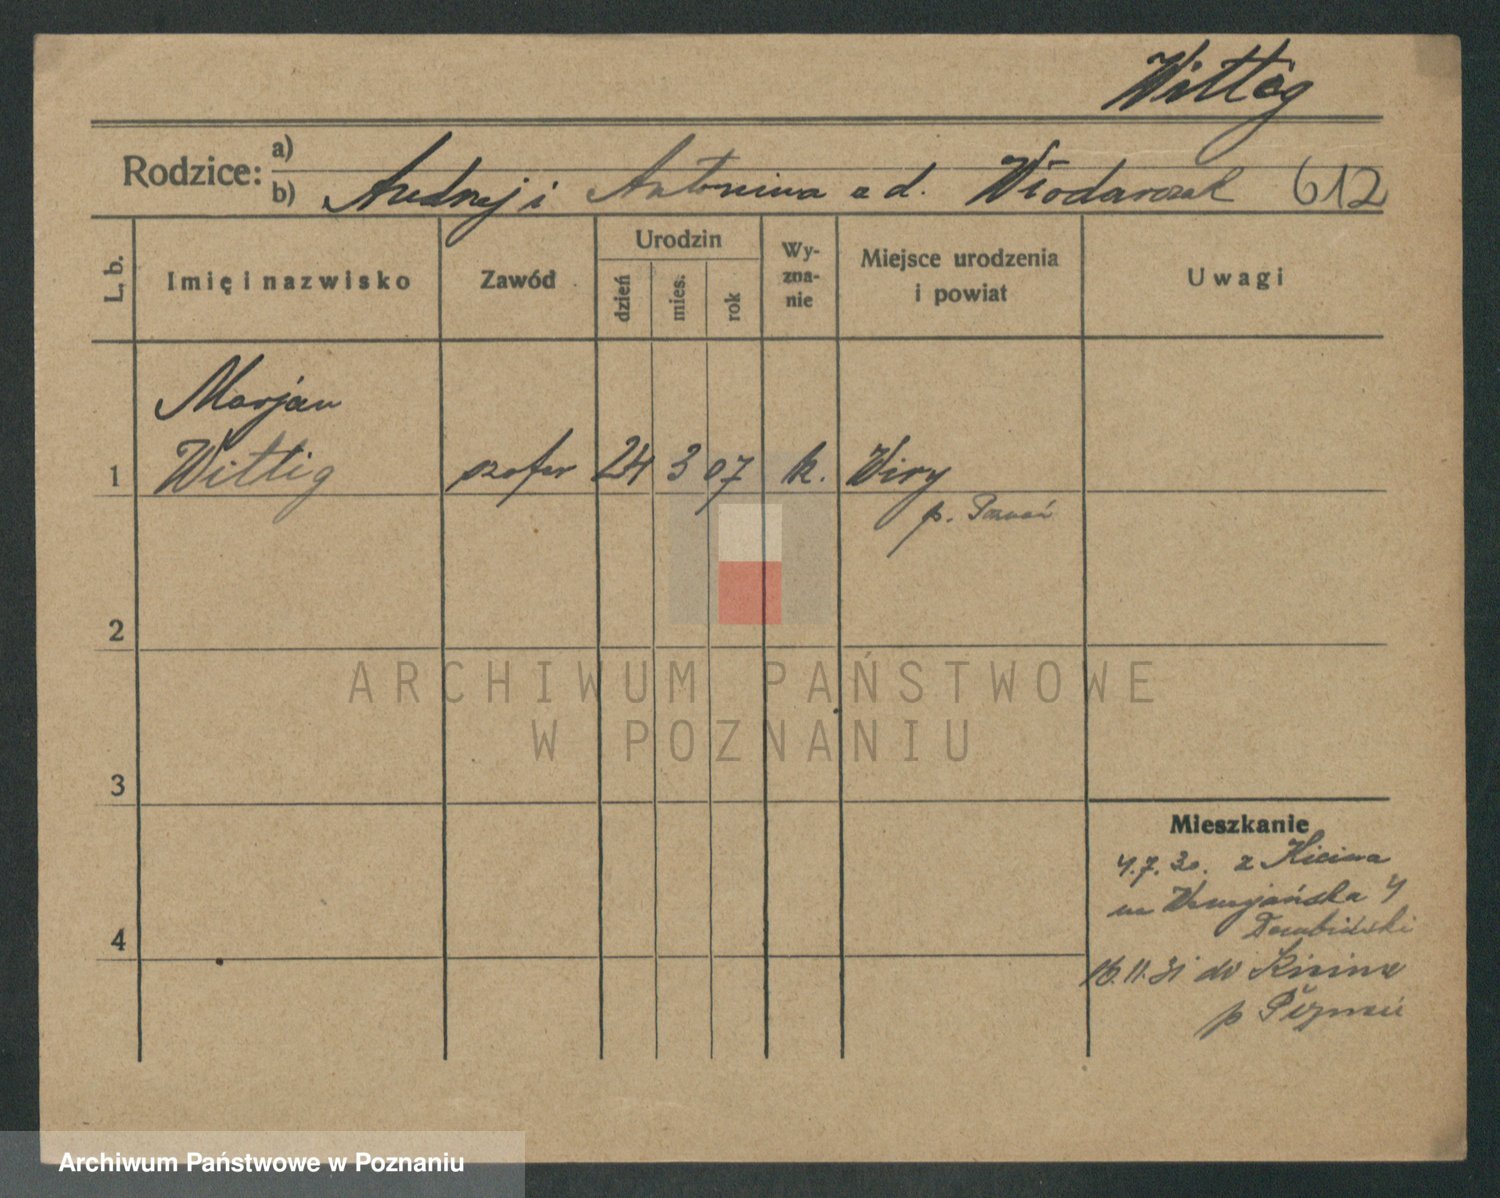 Wittig
Rodzice: a)
b) Andrzej i Antonina z d. Włodarczak 612
L. b. Imię i nazwisko Zawód Urodzin dzień mies. rok Wy-zna-nie Miejsce urodzenia i powiat Uwagi
Marjan
1 Wittig szofer 24 3 07 k. Wiry
p. Poznań
2
ARCHIWUM PAŃSTWOWE
W POZNANIU
3
Mieszkanie
4.7.30. z Kicina
na 4
4
16.11.31 do Kicina
p Poznań
Archiwum Państwowe w Poznaniu